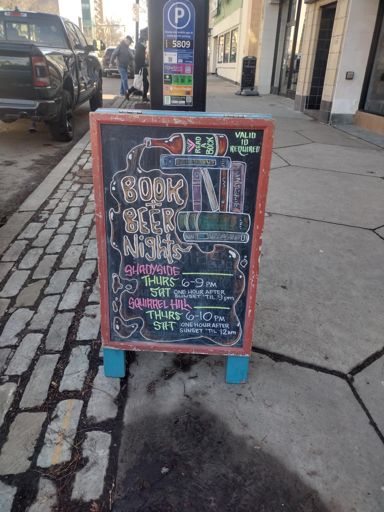 P
5809
READ
A
BOOK
VALID
ID
REQUIRED
BOOK
+
BEER
Nights
SHADYSIDE
THURS 6-9 PM
SAT ONE HOUR AFTER
SUNSET 'TIL 9pm
SQUIRREL HILL
THURS 6-10 PM
SAT ONE HOUR AFTER
SUNSET 'TIL 12am